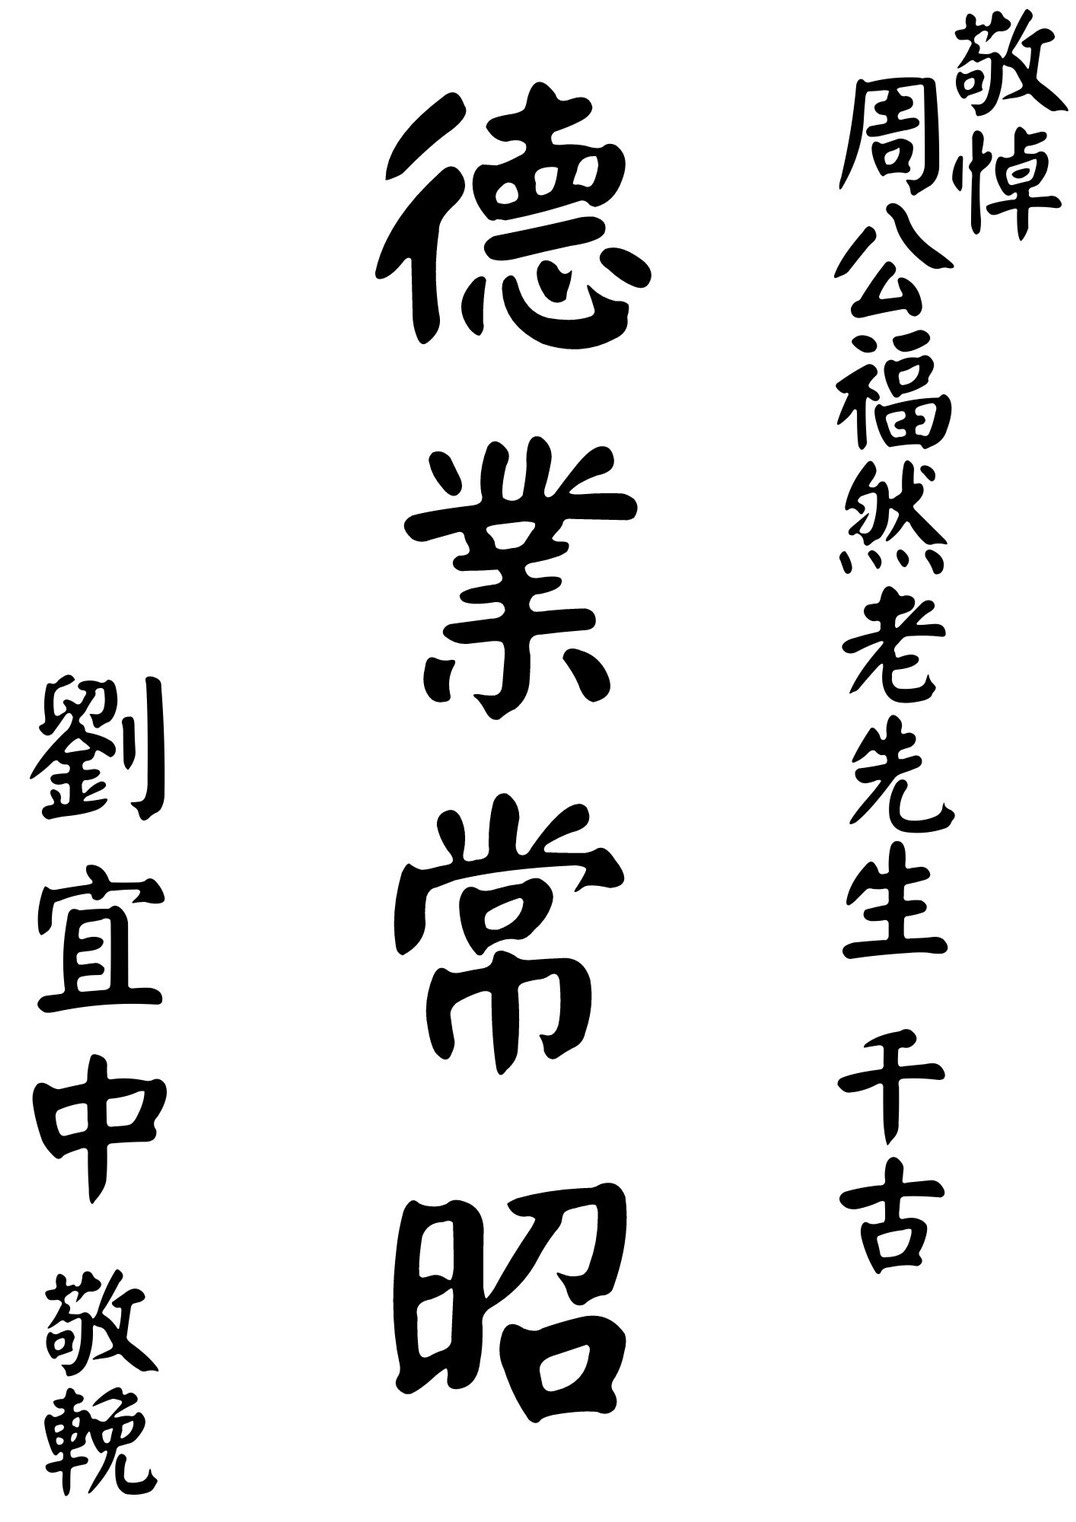 敬悼
周公福然老先生 千古
德業常昭
劉宜中 敬輓